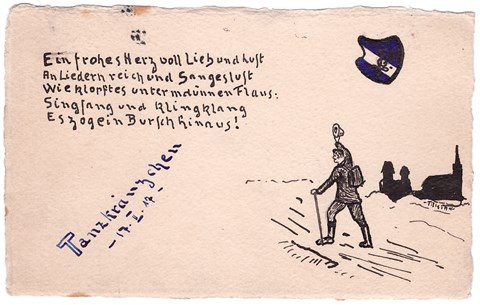 Ein frohes Herz voll Lieb und Lust
An Liedern reich und Sangeslust
Wie klopft es unterm dünnen Flaus:
Singsang und Klingklang
Es zog ein Bursch hinaus!
Tanzkränzchen